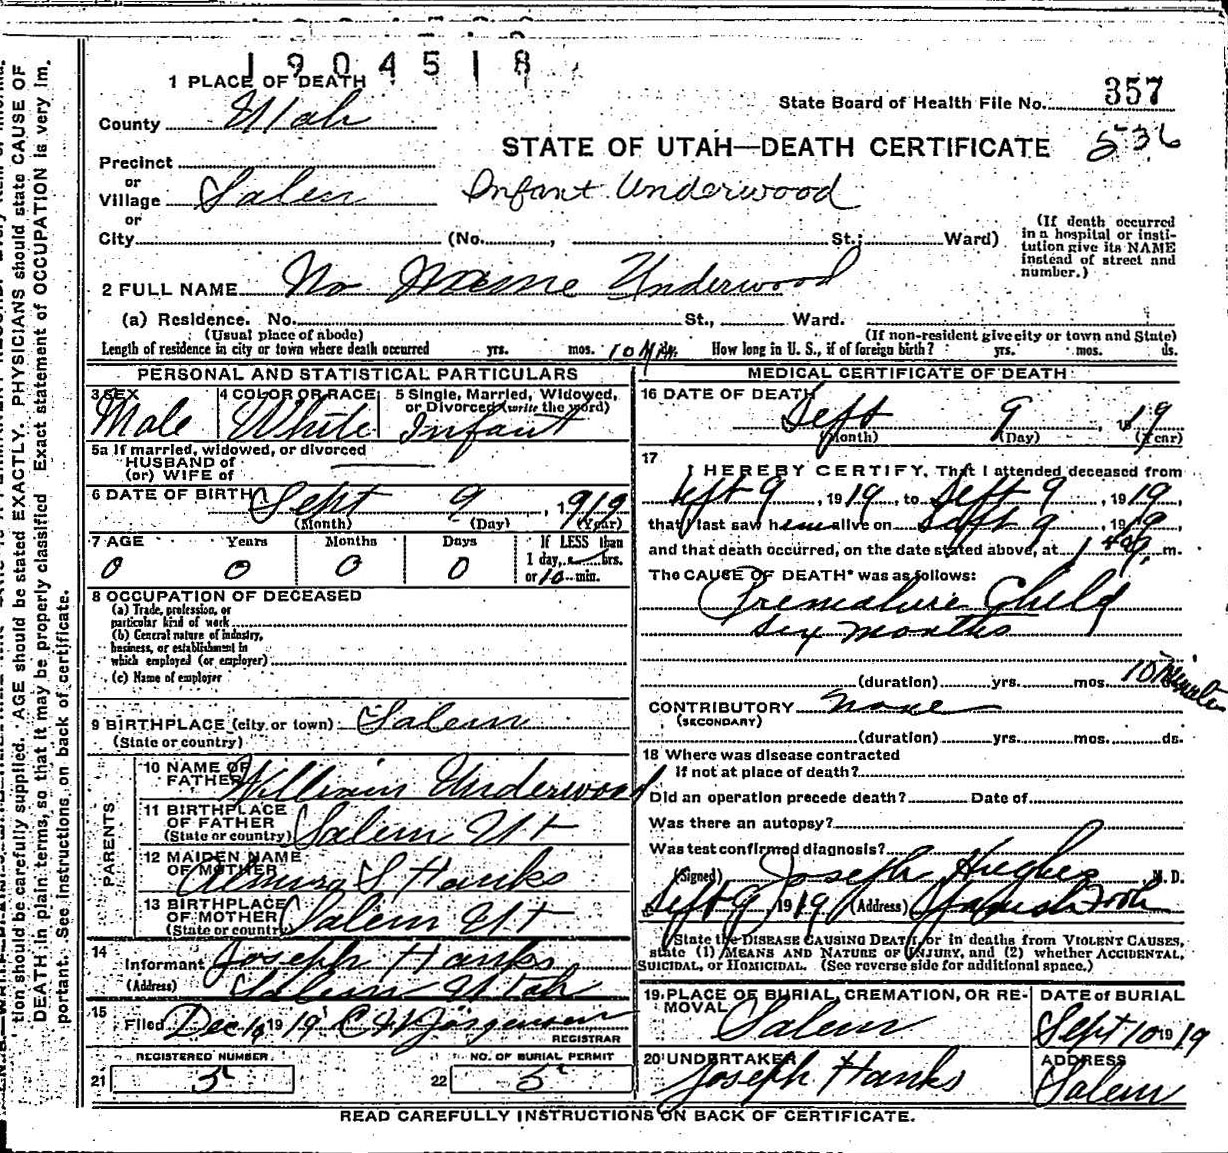 1904518
1 PLACE OF DEATH
State Board of Health File No. 357
County Utah
STATE OF UTAH—DEATH CERTIFICATE 536
Precinct
or
Village Salem
Infant Underwood
or
City (No. , St.; Ward)
(If death occurred in a hospital or insti-
tution give its NAME
instead of street and
number.)
2 FULL NAME No Name Underwood
(a) Residence. No. St., Ward.
(Usual place of abode) (If non-resident give city or town and State)
Length of residence in city or town where death occurred yrs. mos. 10 Min. How long in U. S., if of foreign birth? yrs. mos. ds.
PERSONAL AND STATISTICAL PARTICULARS
3 SEX Male
4 COLOR OR RACE White
5 Single, Married, Widowed,
or Divorced (write the word)
Infant
5a If married, widowed, or divorced
HUSBAND of
(or) WIFE of
6 DATE OF BIRTH Sept 9, 1919
(Month) (Day) (Year)
7 AGE Years Months Days If LESS than
1 day, hrs.
0 0 0 0 or 10 min.
8 OCCUPATION OF DECEASED
(a) Trade, profession, or
particular kind of work
(b) General nature of industry,
business, or establishment in
which employed (or employer)
(c) Name of employer
9 BIRTHPLACE (city or town) Salem
(State or country)
PARENTS
10 NAME OF
FATHER William Underwood
11 BIRTHPLACE
OF FATHER
(State or country) Salem Ut
12 MAIDEN NAME
OF MOTHER S Hanks
13 BIRTHPLACE
OF MOTHER
(State or country) Salem Ut
14
Informant Joseph Hanks
(Address) Salem Utah
15
Filed Dec 1919 Jorgensen
REGISTRAR
REGISTERED NUMBER NO. OF BURIAL PERMIT
21 5 22 5
MEDICAL CERTIFICATE OF DEATH
16 DATE OF DEATH
Sept 9, 1919
(Month) (Day) (Year)
17
I HEREBY CERTIFY, That I attended deceased from
Sept 9, 1919, to Sept 9, 1919,
that I last saw him alive on Sept 9, 1919,
and that death occurred, on the date stated above, at m.
The CAUSE OF DEATH* was as follows:
Premature Child
six months
(duration) yrs. mos. 10 Minutes
CONTRIBUTORY none
(SECONDARY)
(duration) yrs. mos. ds.
18 Where was disease contracted
If not at place of death?
Did an operation precede death? Date of
Was there an autopsy?
Was test confirmed diagnosis?
(Signed) Joseph Hughes, M. D.
Sept 9 1919 (Address) Spanish Fork
*State the DISEASE CAUSING DEATH, or in deaths from VIOLENT CAUSES,
state (1) MEANS AND NATURE OF INJURY, and (2) whether ACCIDENTAL,
SUICIDAL, or HOMICIDAL. (See reverse side for additional space.)
19 PLACE OF BURIAL, CREMATION, OR RE-
MOVAL Salem
DATE of BURIAL
Sept 10 1919
20 UNDERTAKER
Joseph Hanks
ADDRESS
Salem
READ CAREFULLY INSTRUCTIONS ON BACK OF CERTIFICATE.
tion should be carefully supplied. AGE should be stated EXACTLY. PHYSICIANS should state CAUSE OF
DEATH in plain terms, so that it may be properly classified. Exact statement of OCCUPATION is very im-
portant. See instructions on back of certificate.